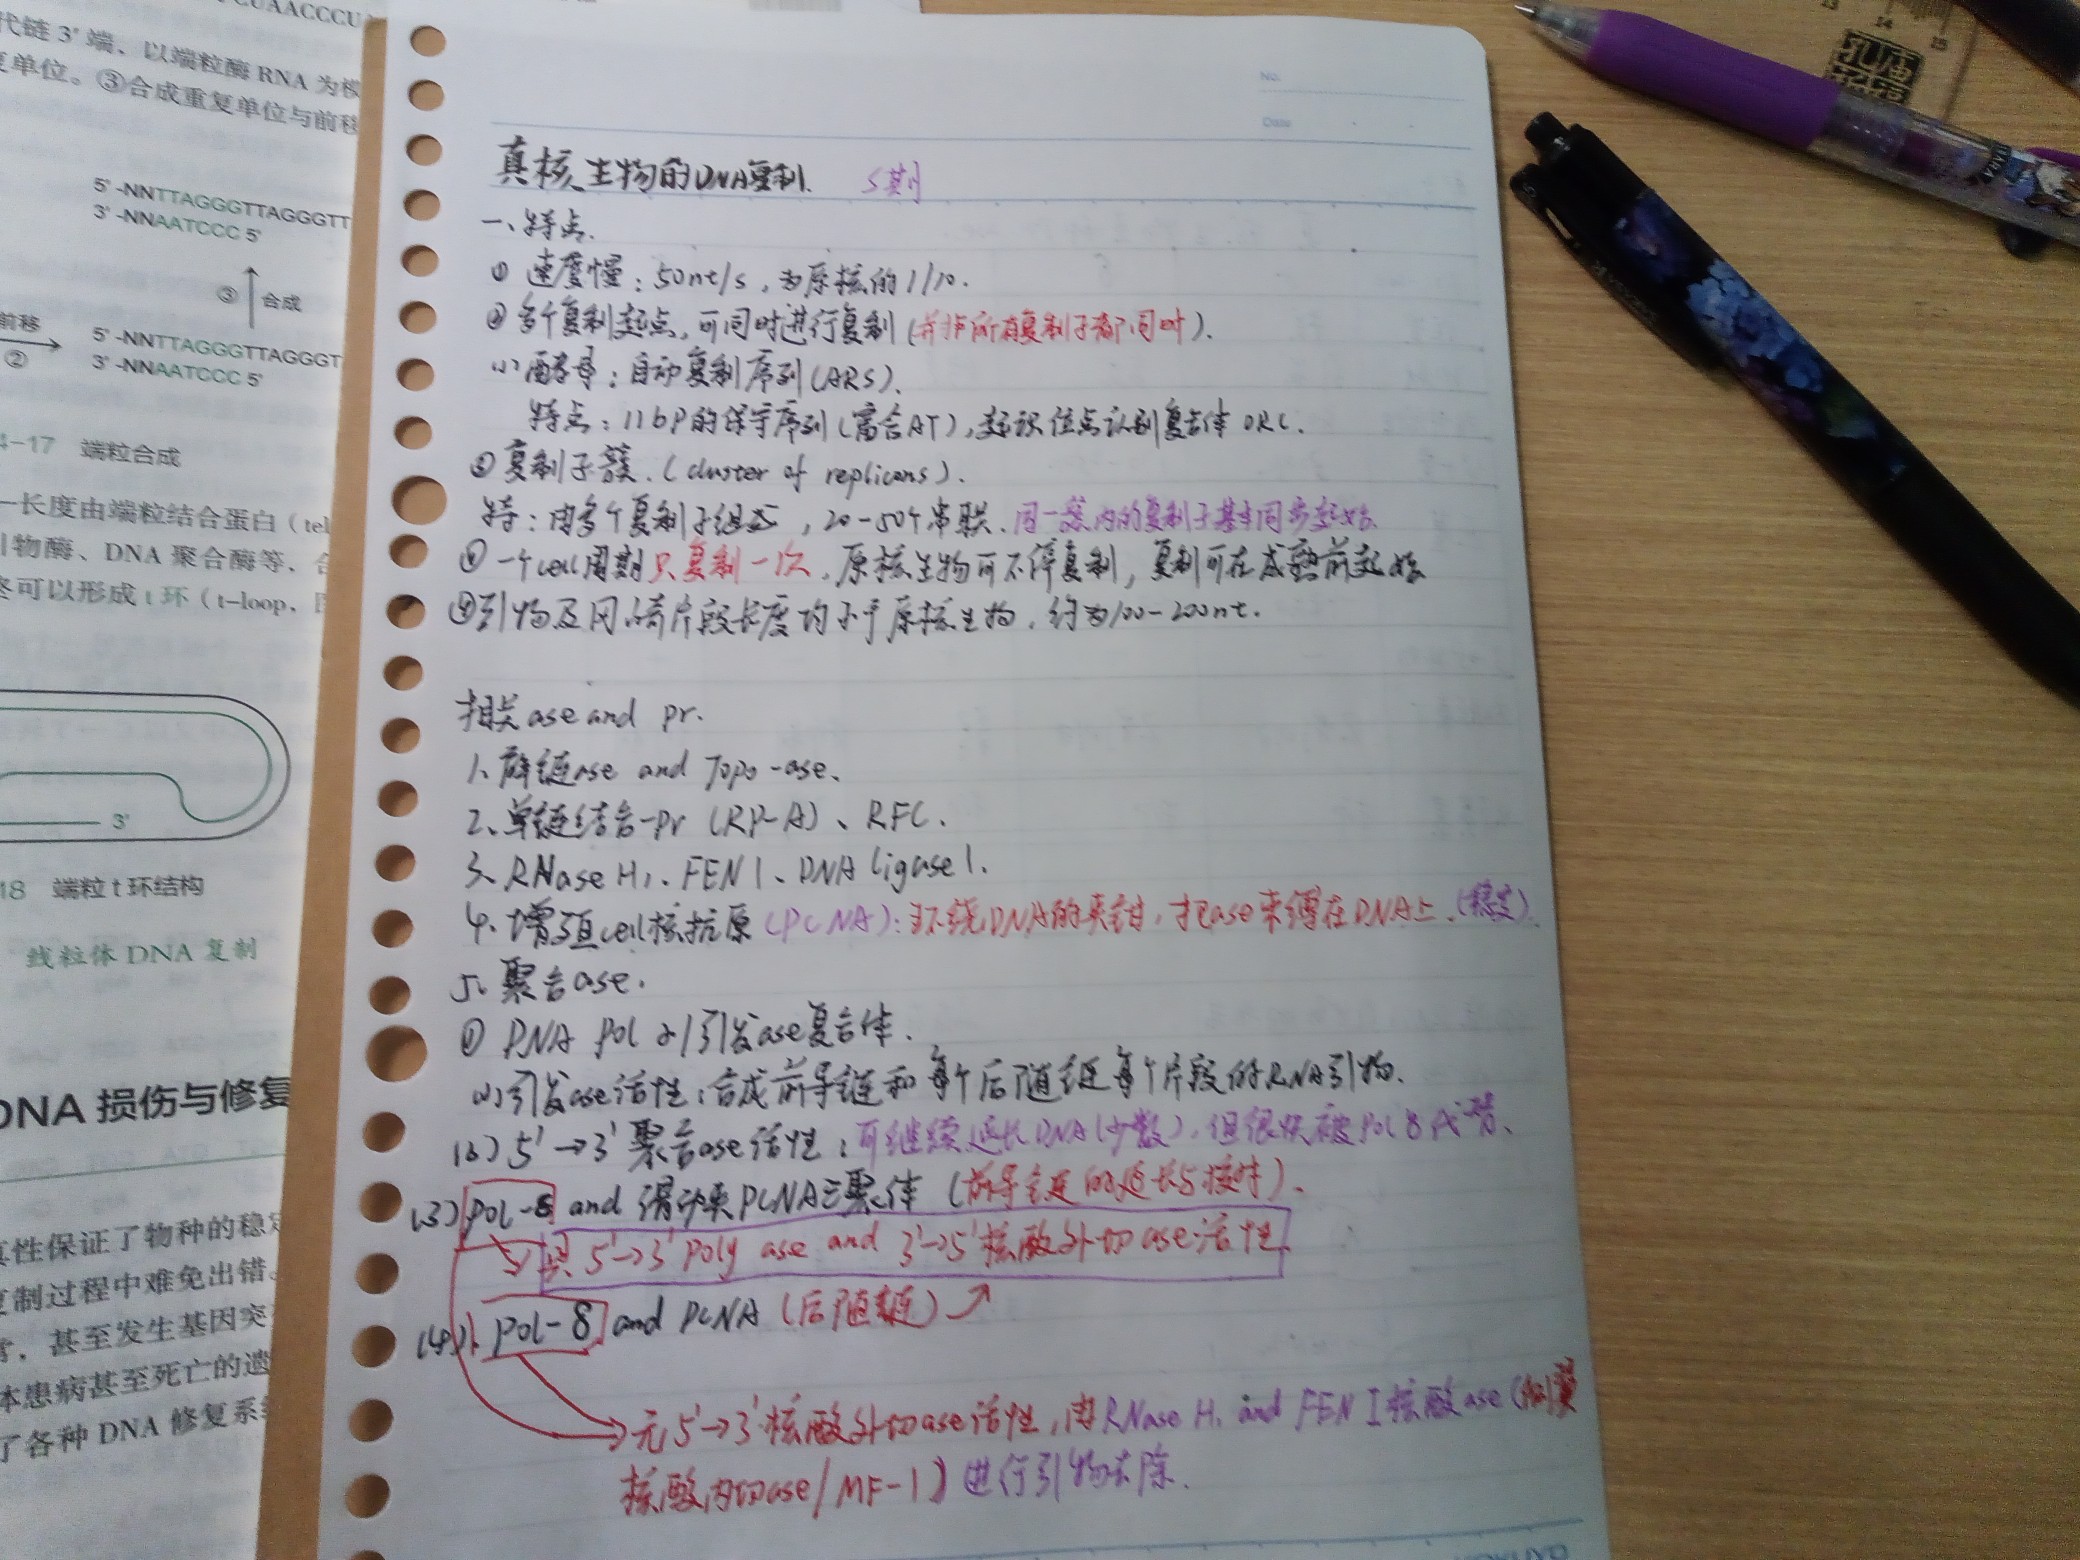 CUAACCCU
代链3'端、以端粒酶RNA为模
复单位。③合成重复单位与前移
5'-NNTTAGGGTTAGGGTT
3'-NNAATCCC 5'
③ 合成
前移
②
5'-NNTTAGGGTTAGGGT
3'-NNAATCCC 5'
4-17 端粒合成
一长度由端粒结合蛋白（tel
引物酶、DNA聚合酶等，合
终可以形成t环（t-loop，图
3'
18 端粒t环结构
线粒体DNA复制
DNA损伤与修复
真性保证了物种的稳定
复制过程中难免出错。
常，甚至发生基因突
体患病甚至死亡的遗
了各种DNA修复系统
No.
Date
真核生物的DNA复制. S期
一、特点.
① 速度慢：50nt/s，为原核的1/10.
② 多个复制起点，可同时进行复制(并非所有复制子都同时).
(1) 酵母：自动复制序列(ARS).
特点：11bp的保守序列(富含AT)，起识位点识别复合体ORC.
③ 复制子簇.(cluster of replicons).
特：由多个复制子组成，20-50个串联.同一簇内的复制子基本同步起始.
④ 一个cell周期只复制一次，原核生物可不停复制，复制可在成熟前起始
⑤引物及冈崎片段长度均小于原核生物，约为100-200nt.
相关ase and pr.
1、解链ase and Topo-ase、
2、单链结合-pr (RP-A)、RFC.
3、RNase H1、FEN1、DNA ligase1.
4、增殖cell核抗原(PCNA)：环绕DNA的夹钳，把ase束缚在DNA上.(稳定).
5、聚合ase.
① DNA pol α/引发ase复合体.
(1)引发ase活性：合成前导链和每个后随链每个片段的RNA引物.
(2) 5'→3'聚合ase活性：可继续延长DNA(少数)，但很快被Pol δ代替、
(3) pol-ε and 滑动夹PCNA三聚体(前导链的延长与校对).
具5'→3'Poly ase and 3'→5'核酸外切ase活性.
(4) pol-δ and PCNA (后随链)
无5'→3'核酸外切ase活性，由RNase H1 and FEN I核酸ase(侧翼
核酸内切ase/MF-1)进行引物去除.
13 14 15
孔庙